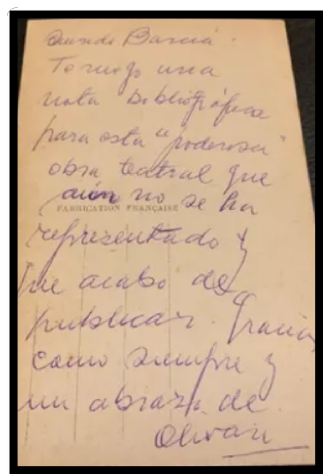 Querido Barciá.
Te ruego una
nota bibliográfica
para esta "poderosa"
obra teatral que
aún no se ha
FABRICATION FRANÇAISE
representado y
que acabo de
publicar. Gracias
como siempre y
un abrazo de
Olivari